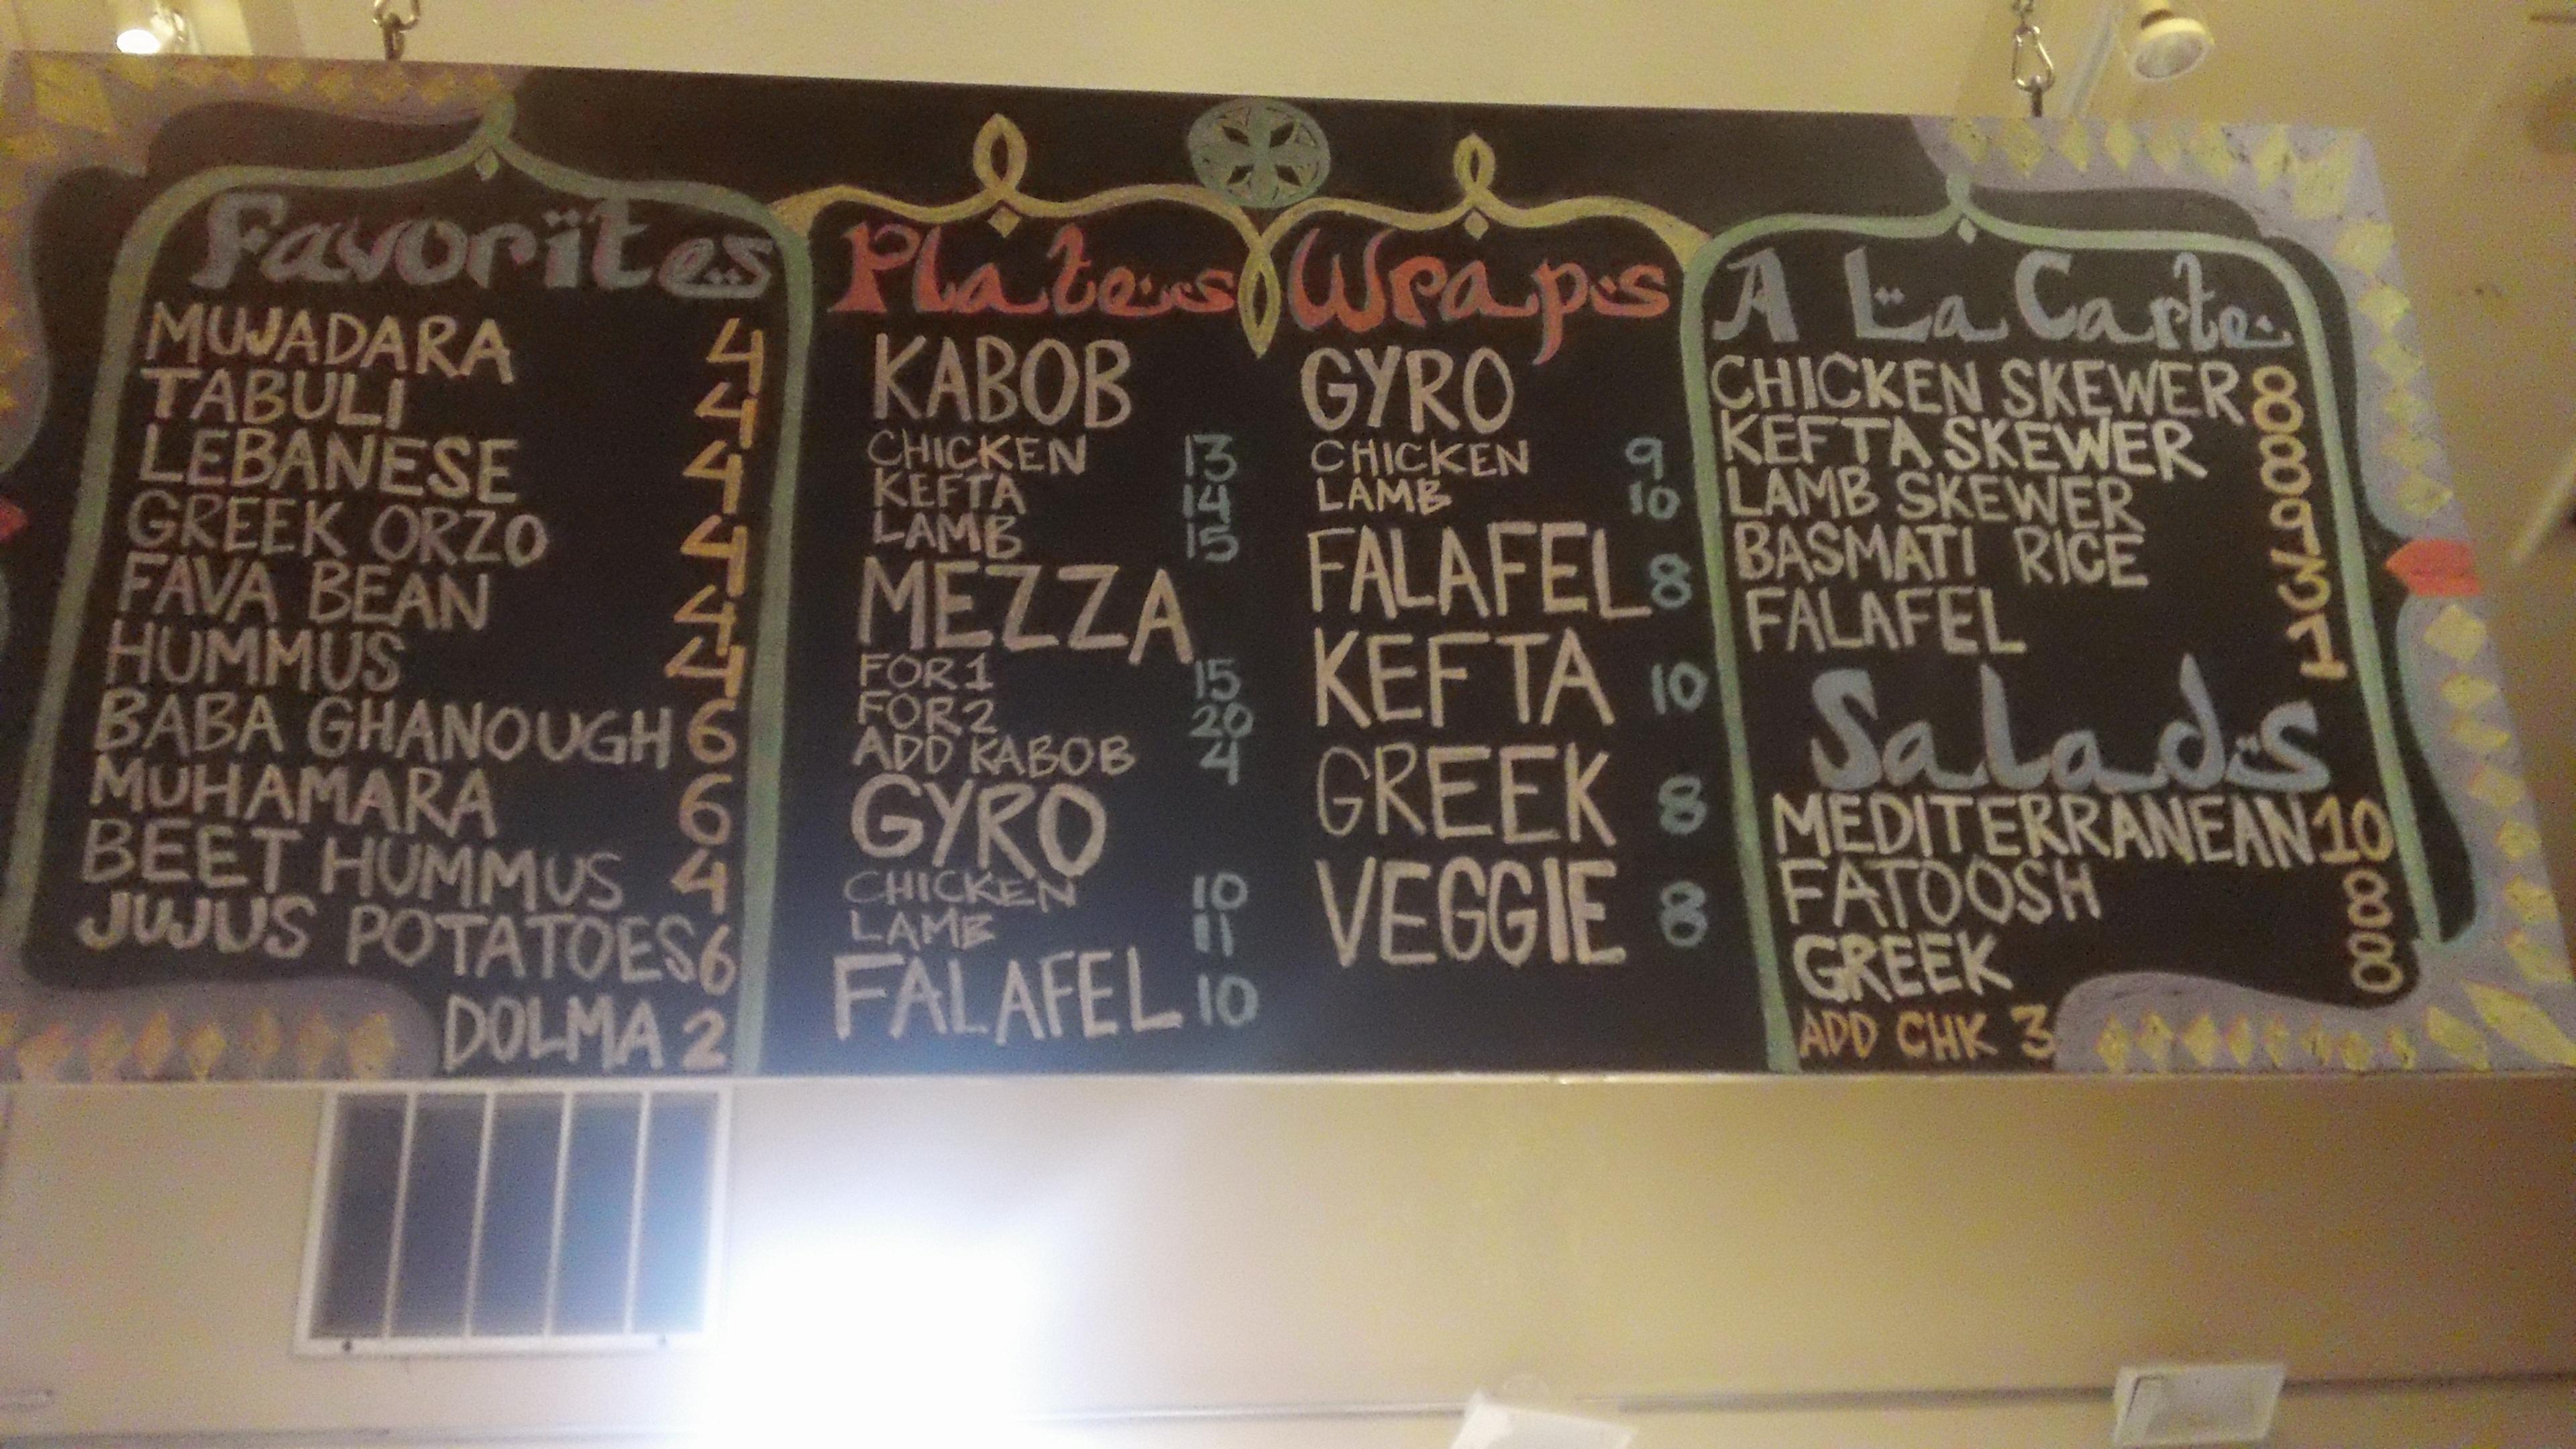 Favorites
MUJADARA 4
TABULI 4
LEBANESE 4
GREEK ORZO 4
FAVA BEAN 4
HUMMUS 4
BABA GHANOUGH 6
MUHAMARA 6
BEET HUMMUS 4
JUJUS POTATOES 6
DOLMA 2
Plates
KABOB
CHICKEN 13
KEFTA 14
LAMB 15
MEZZA
FOR 1 15
FOR 2 20
ADD KABOB 4
GYRO
CHICKEN 10
LAMB 11
FALAFEL 10
Wraps
GYRO
CHICKEN 9
LAMB 10
FALAFEL 8
KEFTA 10
GREEK 8
VEGGIE 8
A La Carte
CHICKEN SKEWER 8
KEFTA SKEWER 8
LAMB SKEWER 9
BASMATI RICE 3
FALAFEL 1
Salads
MEDITERRANEAN 10
FATOOSH 8
GREEK 8
ADD CHK 3